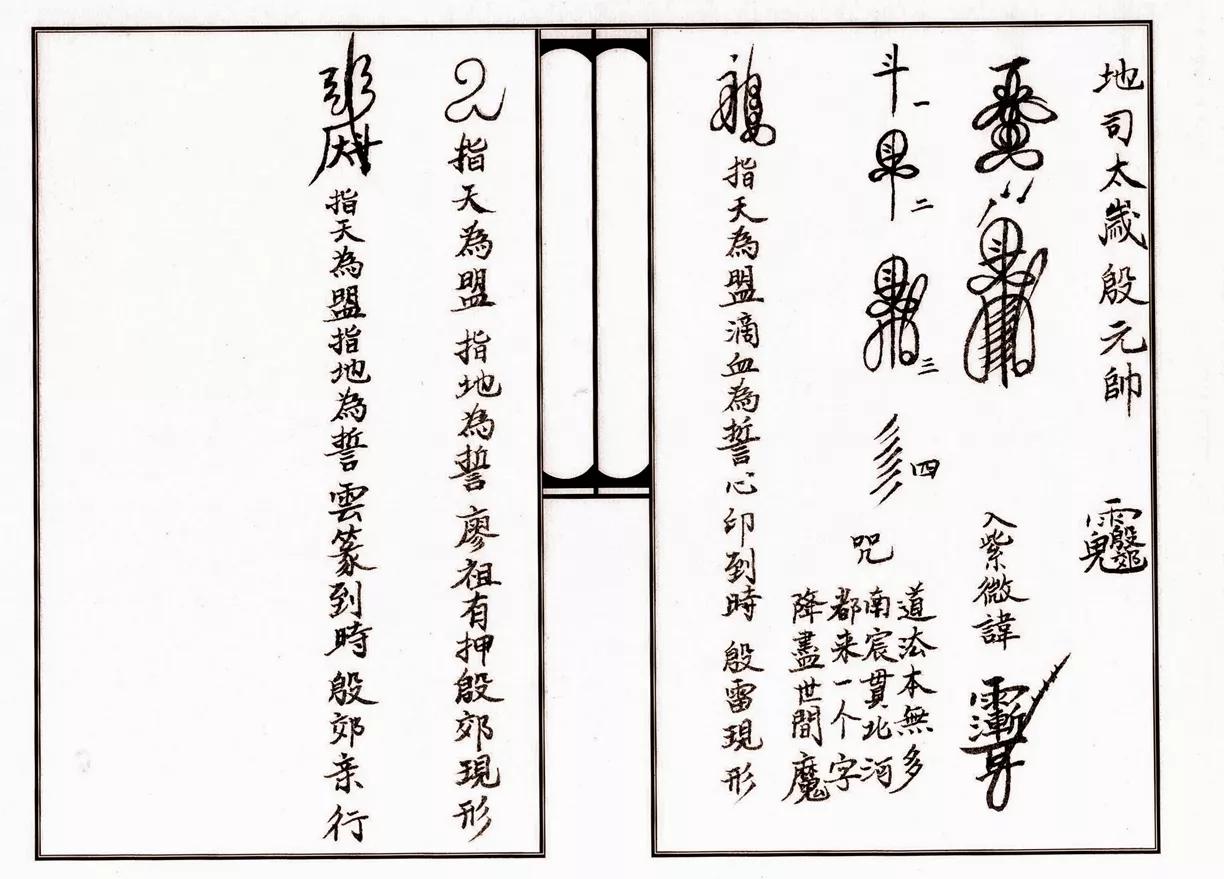 地司太歲殷元帥
入紫微諱
斗一
二
三
四
咒
道法本無多
南宸貫北河
都来一个字
降盡世間魔
指天為盟滴血為誓心印到時殷雷現形
指天為盟指地為誓廖祖有押殷郊現形
指天為盟指地為誓雲篆到時殷郊亲行